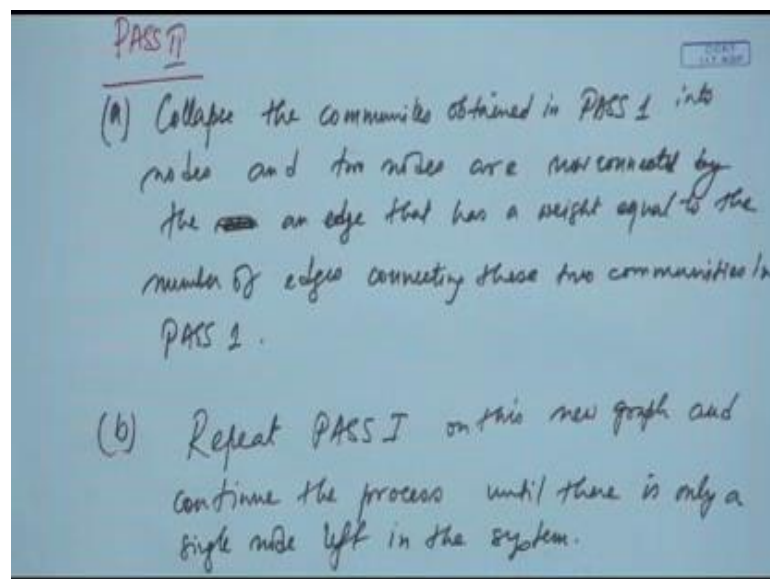 PASS II
(a) Collapse the communities obtained in PASS 1 into
nodes and two nodes are now connected by
the an edge that has a weight equal to the
number of edges connecting these two communities in
PASS 1.
(b) Repeat PASS I on this new graph and
continue the process until there is only a
single node left in the system.